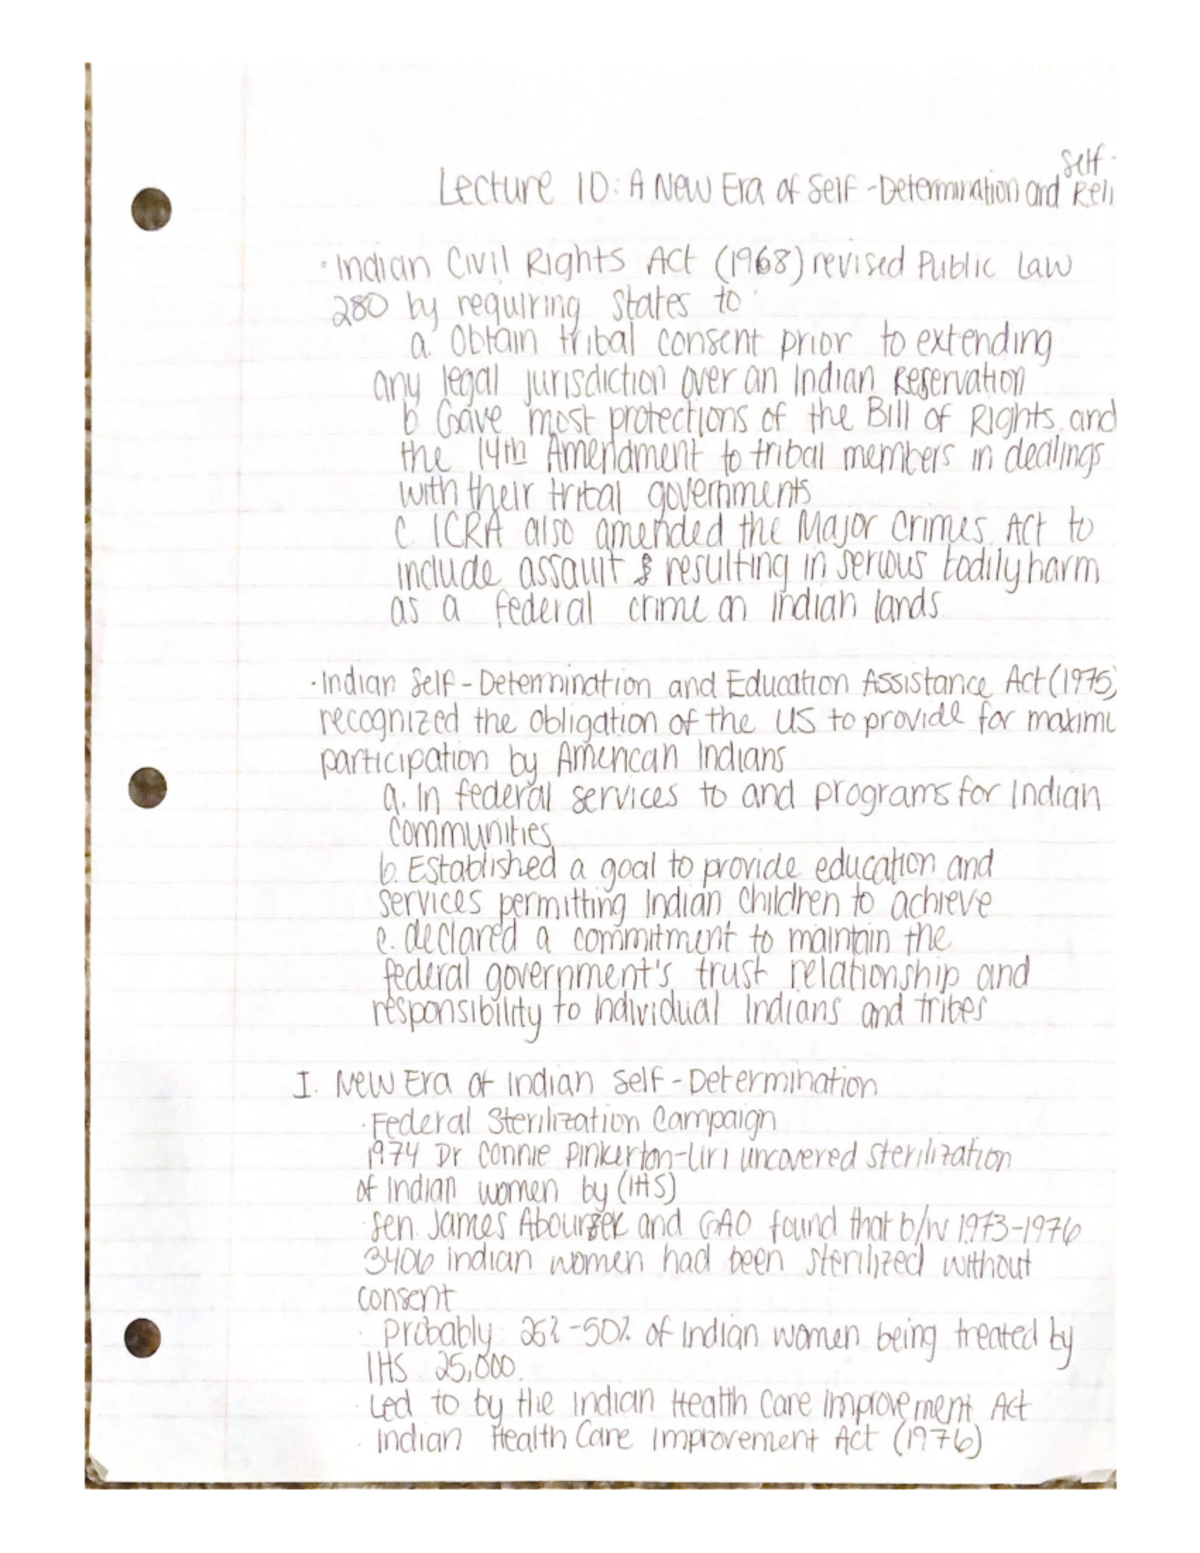 Lecture 10: A New Era of Self-Determination and Self-Reli
• Indian Civil Rights Act (1968) revised Public Law
280 by requiring states to:
a. Obtain tribal consent prior to extending
any legal jurisdiction over an Indian Reservation
b. Gave most protections of the Bill of Rights and
the 14th Amendment to tribal members in dealings
with their tribal governments
c. ICRA also amended the Major Crimes Act to
include assault & resulting in serious bodily harm
as a federal crime on Indian lands
• Indian Self-Determination and Education Assistance Act (1975)
recognized the obligation of the US to provide for maximu
participation by American Indians
a. In federal services to and programs for Indian
communities
b. Established a goal to provide education and
services permitting Indian Children to achieve
c. declared a commitment to maintain the
federal government's trust relationship and
responsibility to individual Indians and tribes
I. New Era of Indian Self-Determination
· Federal Sterilization Campaign
1974 Dr Connie Pinkerton-Uri uncovered sterilization
of Indian women by (IHS)
· Sen. James Abourezk and GAO found that b/w 1973-1976
3406 Indian women had been sterilized without
consent
· Probably 25%-50% of Indian women being treated by
IHS 25,000.
· Led to by the Indian Health Care Improvement Act
· Indian Health Care Improvement Act (1976)